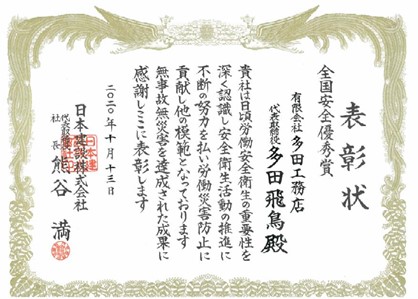 表彰状
全国安全優秀賞
有限会社 多田工務店
代表取締役 多田飛鳥殿
貴社は日頃労働安全衛生の重要性を
深く認識し安全衛生活動の推進に
不断の努力を払い労働災害防止に
貢献し他の模範となっております
無事故無災害を達成された成果に
感謝しここに表彰します
二〇二〇年十月十三日
日本建設株式会社
代表取締役
社長 熊谷 満